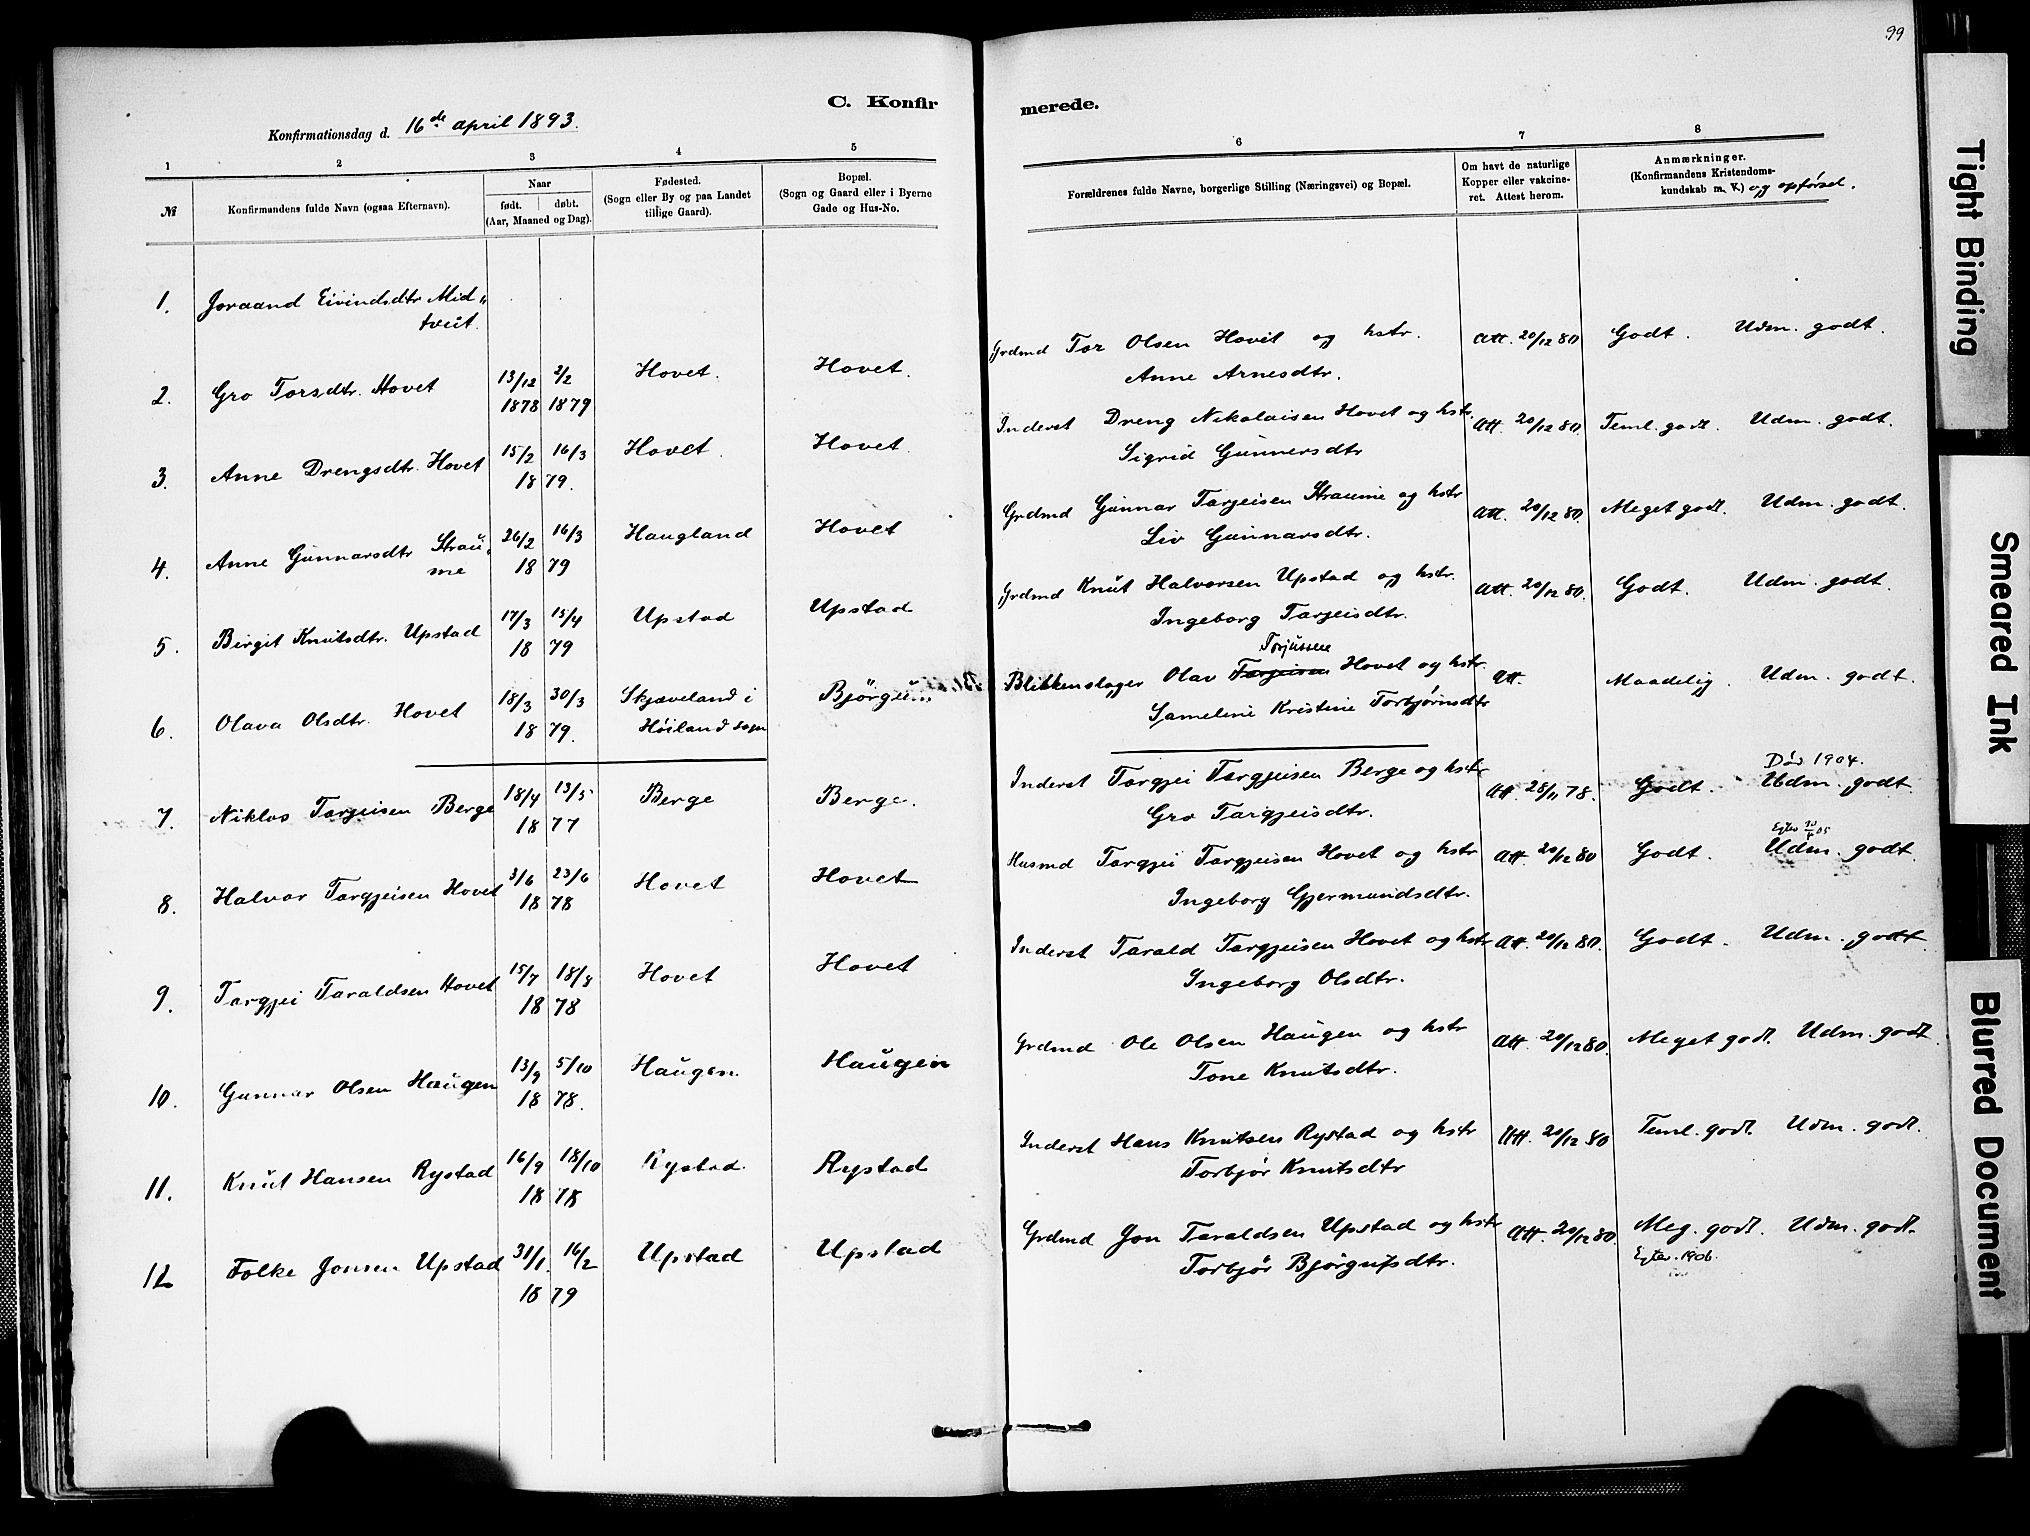 99
C. Konfir merede.
Konfirmationsdag d. 16de april 1893.
1 2 3 4 5 6 7 8
№ Konfirmandens fulde Navn (ogsaa Efternavn).
Naar
født. døbt.
(Aar, Maaned og Dag).
Fødested.
(Sogn eller By og paa Landet
tillige Gaard).
Bopæl.
(Sogn og Gaard eller i Byerne
Gade og Hus-No.
Forældrenes fulde Navne, borgerlige Stilling (Næringsvei) og Bopæl.
Om havt de naturlige
Kopper eller vakcine-
ret. Attest herom.
Anmærkninger.
(Konfirmandens Kristendoms-
kundskab m. V.) og opførsel.
1. Joraand Eivindsdtr Mid„
tveit.
2. Gro Torsdtr. Hovet 13/12 2/2 Hovet. Hovet.
1878 1879
Grdmd Tor Olsen Hovet og hstr. Att. 20/12 80 Godt. Udm. godt.
Anne Arnesdtr.
3. Anne Drengsdtr. Hovet 15/2 16/3 Hovet. Hovet
18 79.
Inderst Dreng Nikolaisen Hovet og hstr. Att. 20/12 80. Teml. godt. Udm. godt.
Sigrid Gunnersdtr
4. Anne Gunnarsdtr Strau„ 26/2 16/3 Haugland Hovet
me 18 79
Grdmd Gunnar Tarjeisen Straume og hstr Att. 20/12 80. Meget godt. Udm. godt.
Liv Gunnarsdtr.
5. Birgit Knutsdtr. Upstad 17/3 15/4 Upstad Upstad
18 79
Grdmd Knut Halvorsen Upstad og hstr. Att. 20/12 80. Godt. Udm. godt.
Ingeborg Tarjeisdtr.
6. Olava Olsdtr. Hovet 18/3 30/3 Skjæveland i Bjørgum
18 79. Høiland sogn
Torjussen
Blikkenslager Olav Tarjeisen Hovet og hstr. Att. Maadelig. Udm. godt.
Sameline Kristine Torbjørnsdtr
7. Niklos Tarjeisen Berge 18/4 13/5 Berge Berge.
18 77
Død 1904.
Inderst Targjei Targjeisen Berge og hstr Att. 28/11 78. Godt. Udm. godt.
Gro Targjeisdtr.
8. Halvor Targjeisen Hovet 3/6 23/6 Hovet Hovet
18 78
Husmd Targjei Targjeisen Hovet og hstr Att. 20/12 80 Godt. Udm. godt.
Ingeborg Gjermundsdtr.
9. Targjei Taraldsen Hovet 15/7 18/8 Hovet Hovet
18 78
Inderst Tarald Targjeisen Hovet og hstr Att. 20/12 80. Godt. Udm. godt.
Ingeborg Olsdtr.
10. Gunnar Olsen Haugen 13/9 5/10 Haugen. Haugen
18 78.
Grdmd Ole Olsen Haugen og hstr Att. 20/12 80. Meget godt. Udm. godt
Tone Knutsdtr.
11. Knut Hansen Rystad 16/9 18/10 Rystad. Rystad
18 78
Inderst Hans Knutsen Rystad og hstr Att. 20/12 80 Teml. godt. Udm. godt.
Torbjør Knutsdtr
12 Folke Jonsen Upstad 31/1. 16/2 Upstad Upstad
18 79
Grdmd Jon Taraldsen Upstad og hstr Att. 20/12 80. Meg. godt. Udm. godt.
Torbjør Bjørgufsdtr. 1906.
Tight Binding
Smeared Ink
Blurred Document